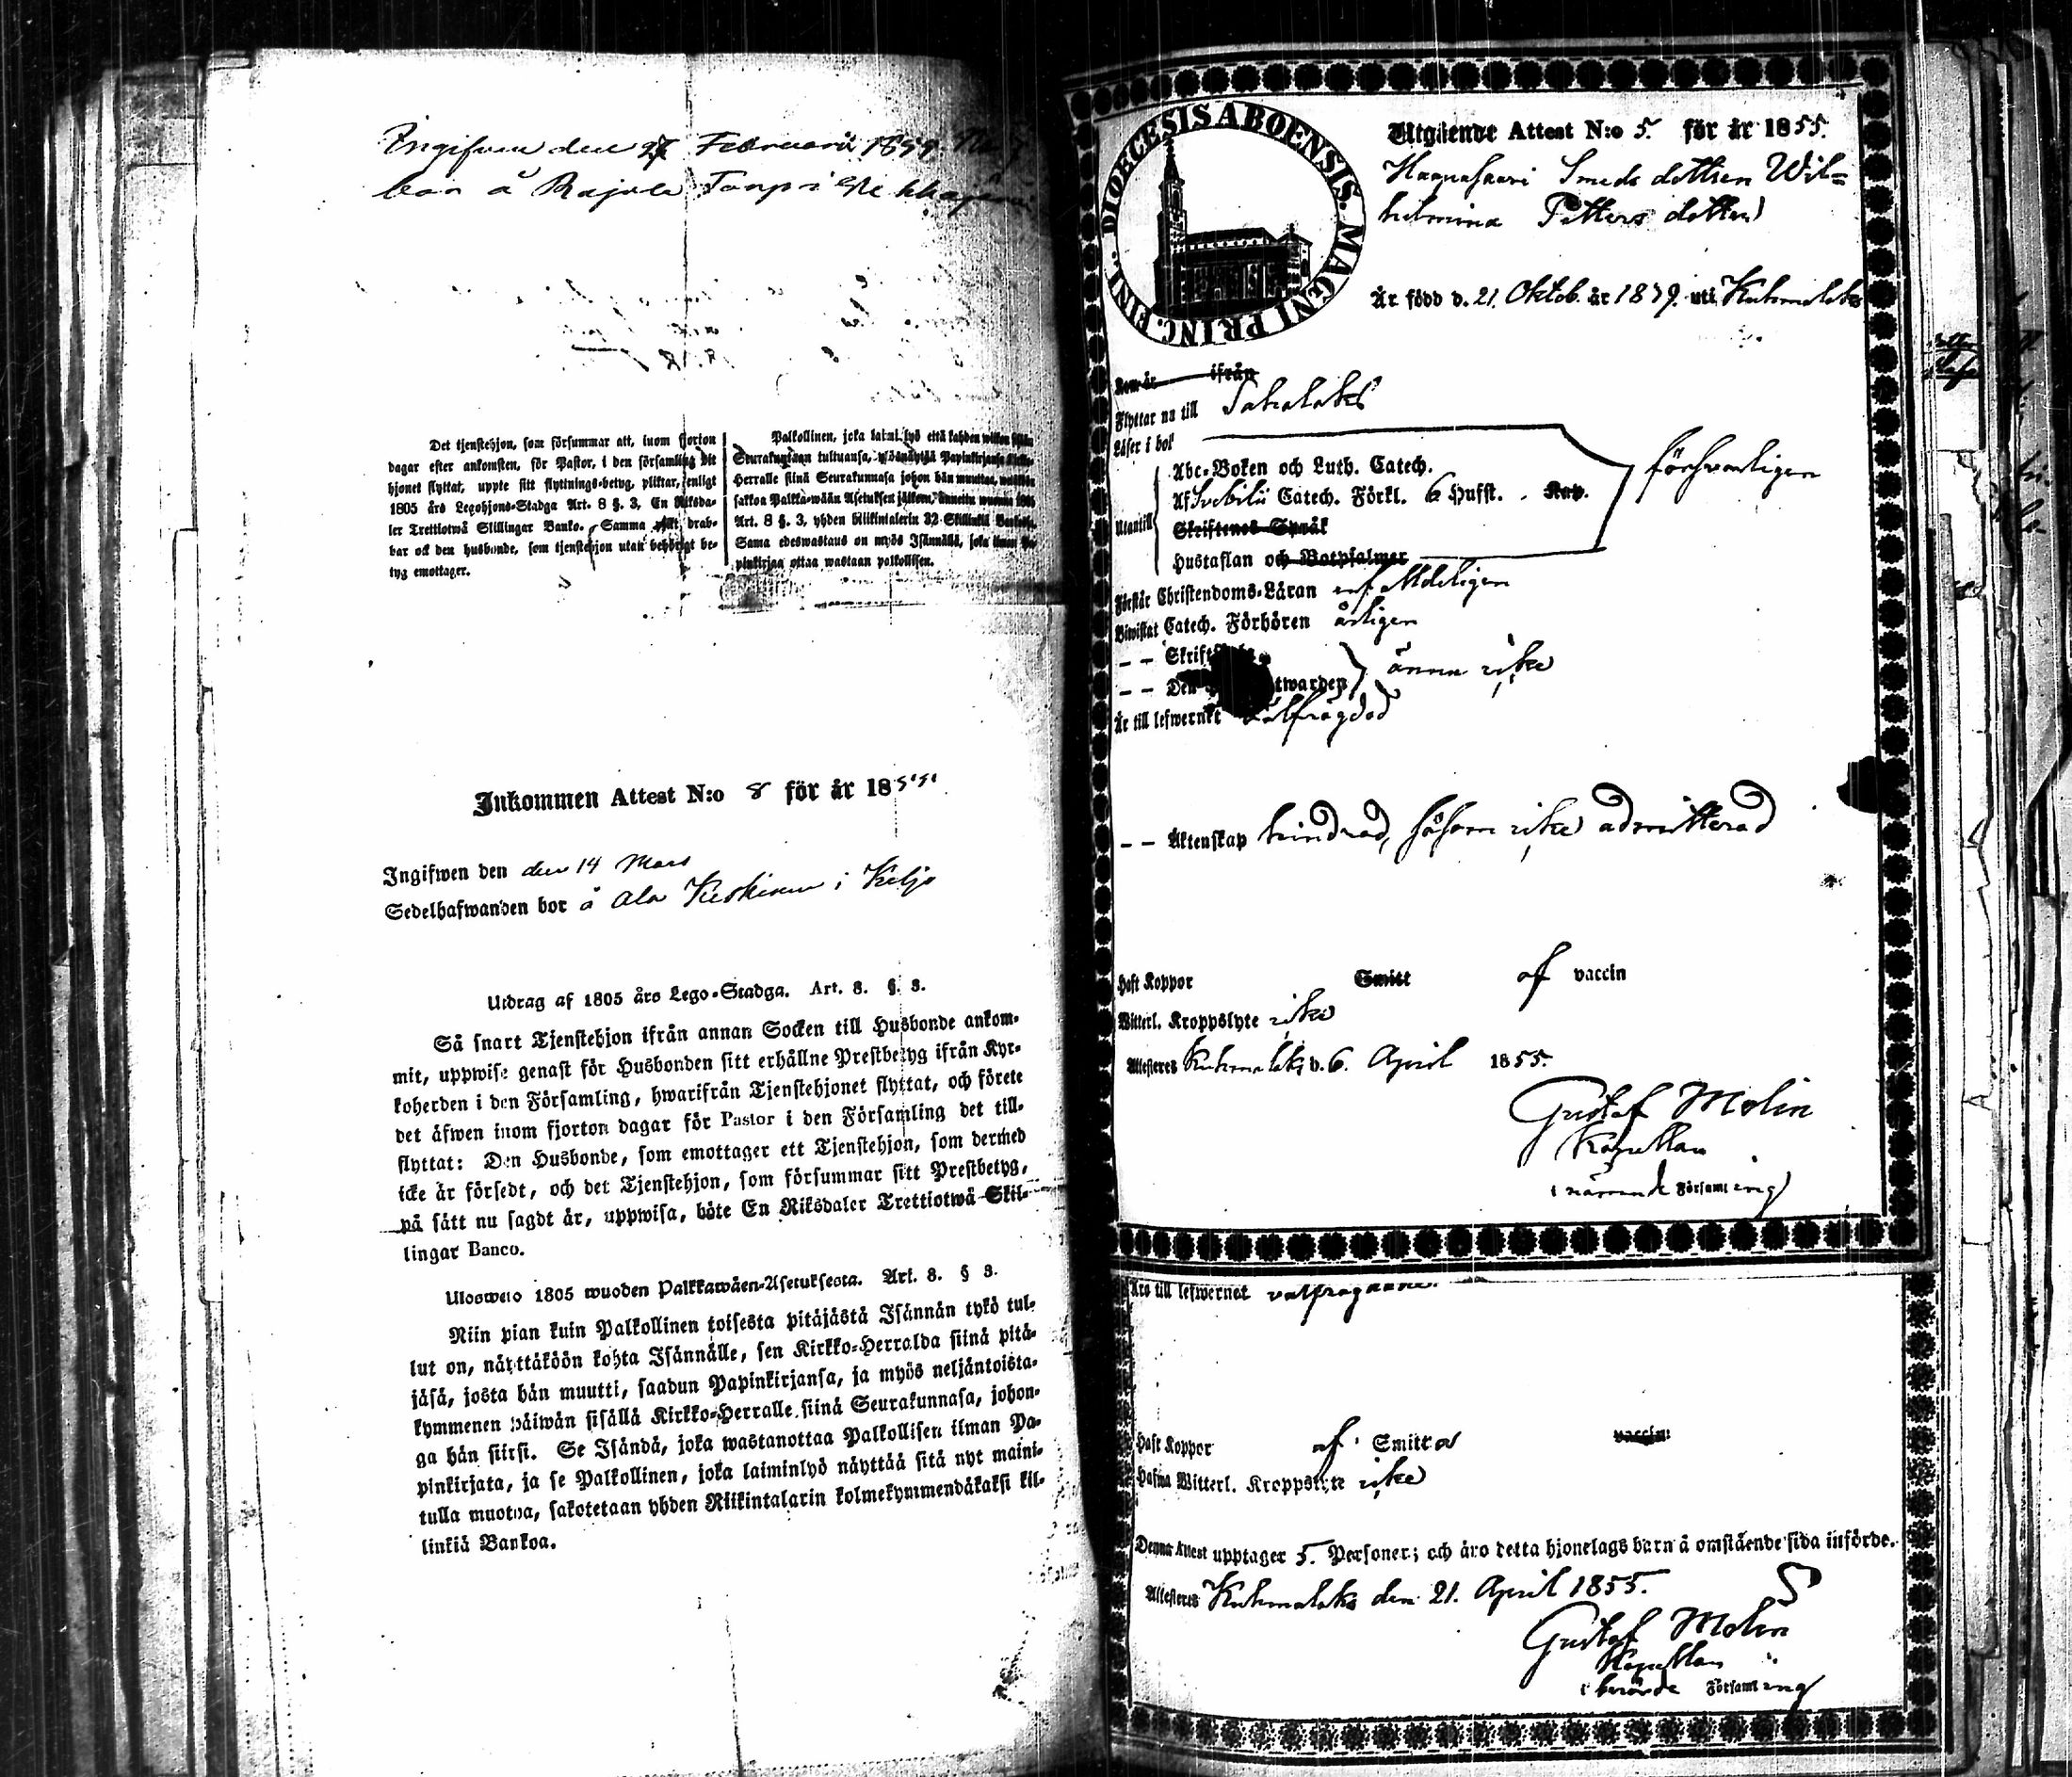 Ingifven den 27 Februari 1855 No 7
bor å Rajala Torp i
Det tjenstehjon, som försummar att, inom fjorton
dagar efter ankomsten, för Pastor, i den församling dit
hjonet flyttat, uppte sitt flyttnings-betyg, pliktar, enligt
1805 års Legohjons-Stadga Art. 8 §. 3, En Riksda-
ler Trettiotwå Skillingar Banko. Samma plikt drab-
bar ock den husbonde, som tjenstehjon utan behörigt be-
tyg emottager.
Palkollinen, joka laimilyö että kahden wiikon sisään
Seurakuntaan tultuansa, ylösnäyttää Papinkirjansa Kirkko-
Herralle siinä Seurakunnasa johon hän muuttaa,
sakkoa Palkka-wään Asetuksen jälkeen, annettu wuonna 1805
Art. 8 §. 3, yhden Riikintalerin 32 Skillinkiä Bankoa.
Sama edeswastaus on myös Isännällä, joka ilman Pa-
pinkirjaa ottaa wastaan palkollisen.
Inkommen Attest N:o 8 för år 1855.
Ingifwen den den 14 Mars
Sedelhafwanden bor å Ala Keskinen i Keljo
Utdrag af 1805 års Lego-Stadga. Art. 8. §. 3.
Så snart Tjenstehjon ifrån annan Socken till Husbonde ankom-
mit, uppwise genast för Husbonden sitt erhållne Prestbetyg ifrån Kyr-
koherden i den Församling, hwarifrån Tjenstehjonet flyttat, och förete
det äfwen inom fjorton dagar för Pastor i den Församling det till-
flyttat: Den Husbonde, som emottager ett Tjenstehjon, som dermed
icke är försedt, och det Tjenstehjon, som försummar sitt Prestbetyg,
på sätt nu sagdt är, uppwisa, böte En Riksdaler Trettiotwå Skil-
lingar Banco.
Ulosweto 1805 wuoden Palkkawäen-Asetuksesta. Art. 8. § 3.
Niin pian kuin Palkollinen toisesta pitäjästä Isännän tykö tul-
lut on, näyttäköön kohta Isännälle, sen Kirkko-Herralda siinä pitä-
jäsä, josta hän muutti, saadun Papinkirjansa, ja myös neljäntoista-
kymmenen päiwän sisällä Kirkko-Herralle siinä Seurakunnasa, johon-
ga hän siirsi. Se Isändä, joka wastanottaa Palkollisen ilman Pa-
pinkirjata, ja se Palkollinen, joka laiminlyö näyttää sitä nyt maini-
tulla muotoa, sakotetaan yhden Riikintalarin kolmekymmendäkaksi kil-
linkiä Bankoa.
DIOECESIS ABOENSIS. MAGNI PRINC. FINL.
Utgående Attest N:o 5 för år 1855.
Haapasaari Smeds dottren Wil-
helmina Petters dotter
Är född d. 21. Oktob. år 1839. uti Kuhmalaks
Kom år ifrån
Flyttar nu till Sahalaks
Läser i bok
Abc-Boken och Luth. Catech.
Utantill Af Svebilii Catech. Förkl. 6 Hufst. Kap. försvarligen
Skriftenes Språk
Hustaflan och Botpsalmer
Förstår Christendoms-Läran enfaldeligen
Biwistat Catech. Förhören årligen
— — Skrift
— — Den twarden ännu icke
Är till lefwernet wälfrägdad
— — Äktenskap hindrad, såsom icke admitterad
Haft Koppor Smitt af vaccin
Witterl. Kroppslyte icke
Attesteras Kuhmalaks d. 6. April 1855.
Gustaf Molin
Kapellan
i nämnde Församling
Äro till lefwernet välfrägdade.
Haft Koppor af Smitta vaccin
Hafwa Witterl. Kroppslyte icke
Denna Attest upptager 5. Personer; och äro detta hjonelags barn å omstående sida införde.
Attesteras Kuhmalaks den 21. April 1855.
Gustaf Molin
Kapellan
i berörde Församling